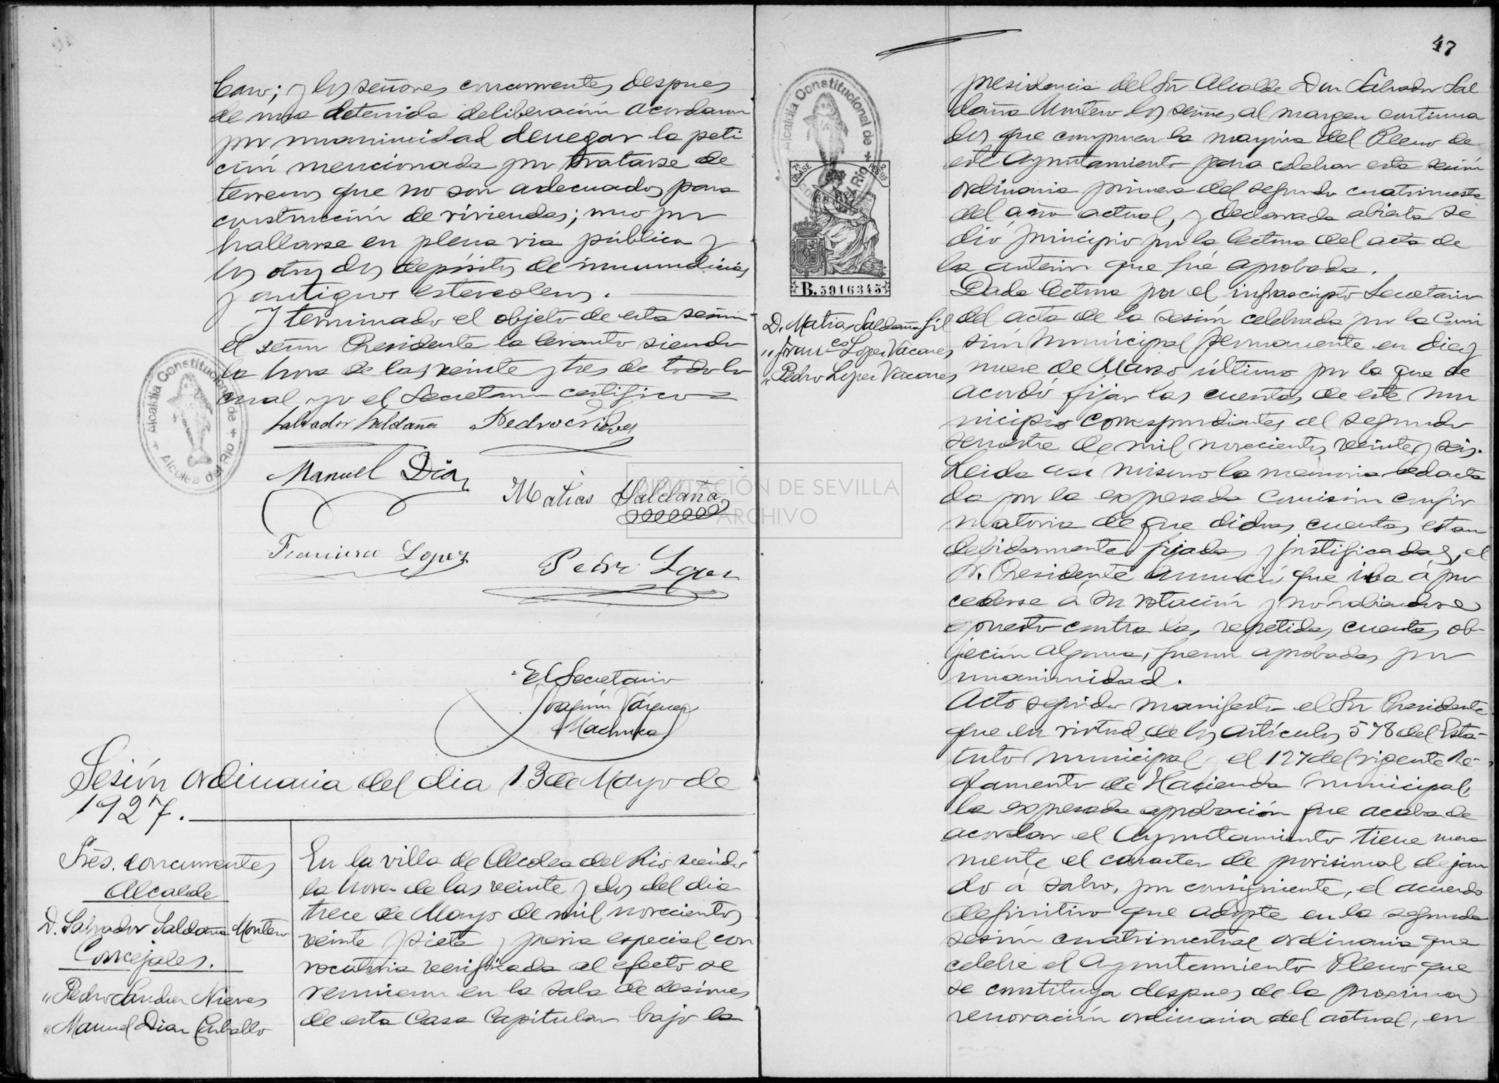 Caro; y los señores concurrentes despues
de una detenida deliberación acordaron
por unanimidad denegar la peti
ción mencionada por tratarse de
terrenos que no son adecuados para
construcción de viviendas; uno por
hallarse en plena via pública y
los otros dos depósitos de inmundicias
y antiguos estercoleros.
Y terminado el objeto de esta sesión
el señor Presidente la levantó siendo
la hora de las veinte y tres de todo lo
cual yo el Secretario certifico=
Salvador Saldaña Pedro Nieves
Manuel Diaz
Matias Saldaña
Francisco Lopez
Pedro Lopez
El Secretario
Joaquín Vázquez
Machuca
Alcaldia Constitucional de + Alcolea del Rio +
Sesión ordinaria del dia 13 de Mayo de
1927.
Sres. concurrentes
Alcalde
D. Salvador Saldaña Montero
Concejales.
" Pedro Nieves
" Manuel Diaz Carballo
En la villa de Alcolea del Rio siendo
la hora de las veinte y dos del dia
trece de Mayo de mil novecientos
veinte y siete y previa especial con
vocatoria verificada al efecto se
reunieron en la sala de sesiones
de esta Casa Capitular bajo la
47
Alcaldia Constitucional de + Alcolea del Rio +
B.5916345
D. Matias Saldaña Gil
" Franco Lopez Vacares
" Pedro Lopez Vacares
presidencia del Sr Alcalde Don Salvador Sal
daña Montero los señores al margen continua
dos que componen la mayoria del Pleno de
este Ayuntamiento para celebrar esta sesión
ordinaria primera del segundo cuatrimestre
del año actual, y declarada abierta se
dió principio por la lectura del acta de
la anterior que fué aprobada.
Dada lectura por el infrascripto Secretario
del acta de la sesión celebrada por la Comi
sión Municipal permanente en diez y
nueve de Marzo último por la que se
acordó fijar las cuentas de este mu
nicipio correspondientes al segundo
semestre de mil novecientos veinte y seis.
Leida asi mismo la memoria redacta
da por la expresada Comision confir
matoria de que dichas cuentas estan
debidamente fijadas y justificadas, el
Sr. Presidente anunció que iba á pro
cederse á su votación y no habiendose
opuesto contra las repetidas cuentas ob-
jeción alguna, fueron aprobadas por
unanimidad.
Acto seguido manifestó el Sr Presidente
que en virtud de los artículos 578 del Esta-
tuto municipal y el 127 del vigente Re-
glamento de Hacienda municipal,
la expresada aprobación que acaba de
acordar el Ayuntamiento tiene mera
mente el caracter de provisional dejan
do á salvo, por consiguiente, el acuerdo
definitivo que adopte en la segunda
sesión cuatrimestral ordinaria que
celebre el Ayuntamiento Pleno que
se constituya despues de la proxima
renovación ordinaria del actual, en
DIPUTACIÓN DE SEVILLA
ARCHIVO